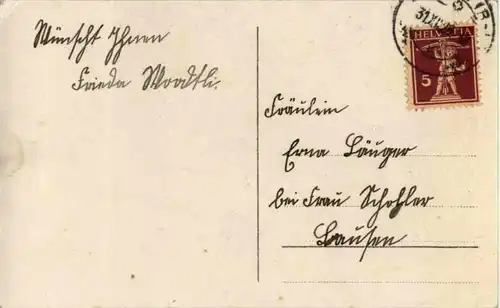 Wünscht Ihnen
Frieda Woodtli.
31.XII.
HELVETIA
5
Fräulein
Erna Läuger
bei Frau Schohler
Lausen